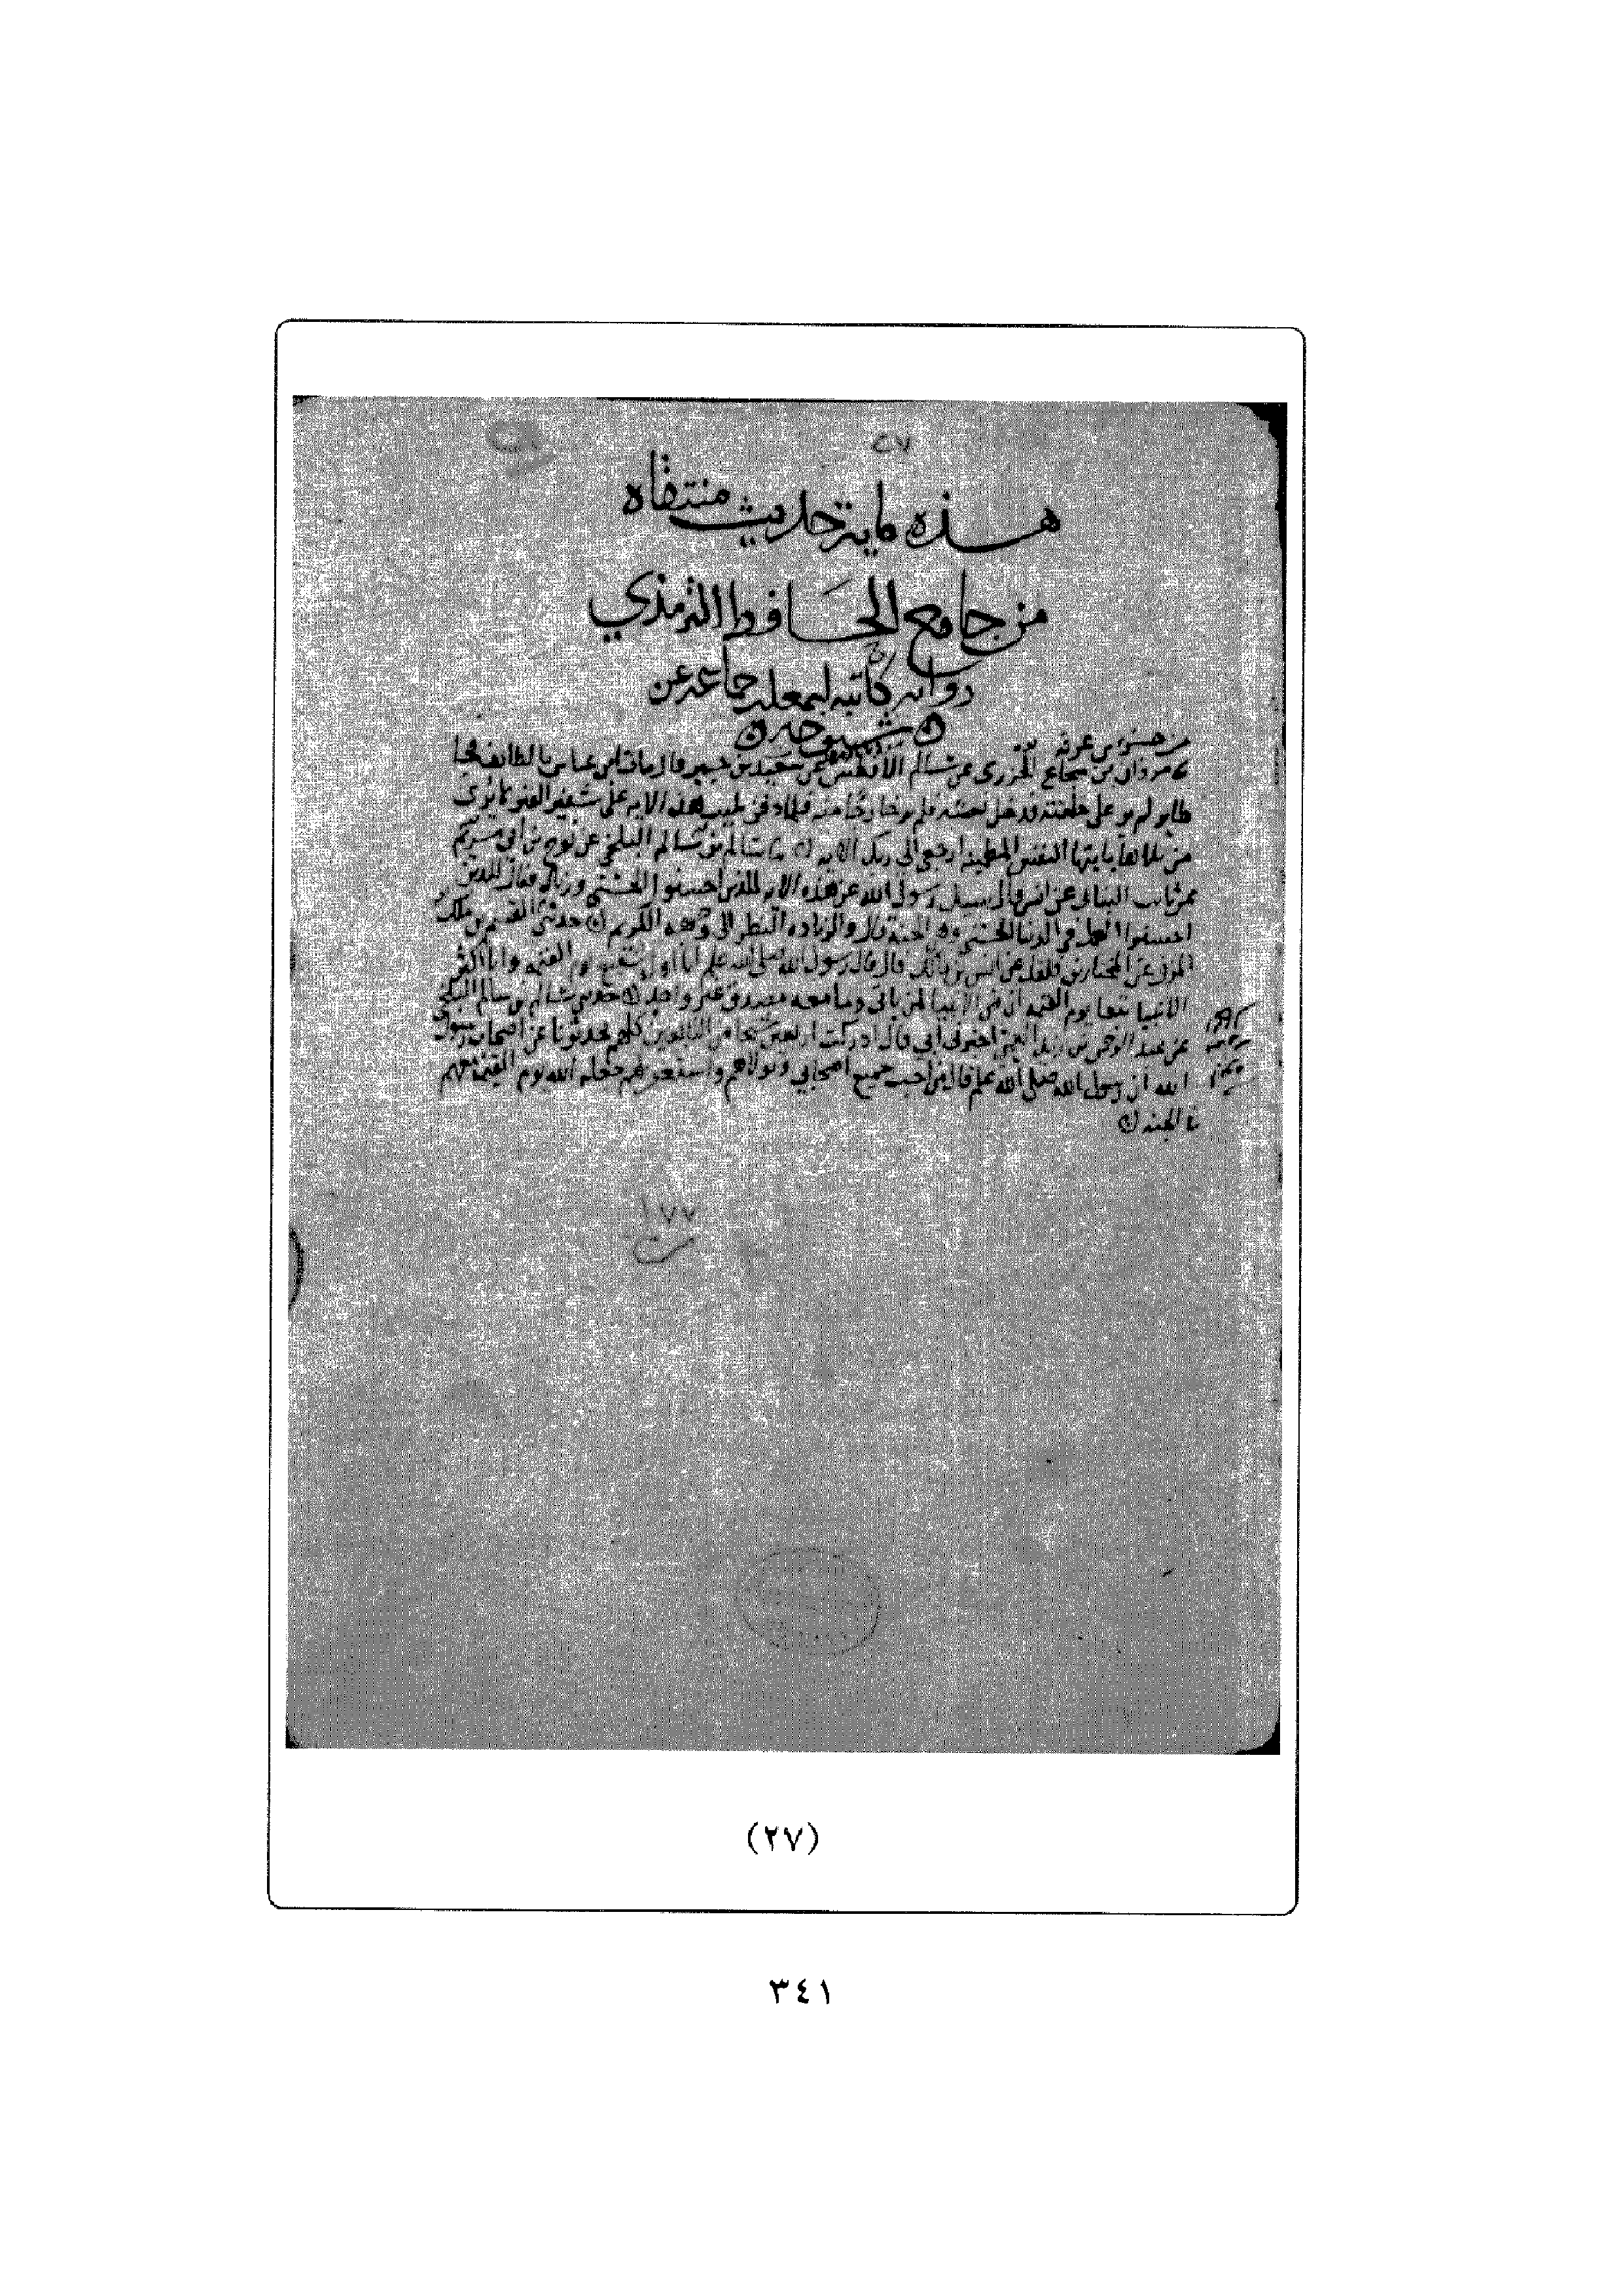 ٢٧
هذه ماية حديث منتقاه
من جامع الحافظ الترمذي
رواية كاتبه ابن معلد جماعة عن
شيوخه
من حسن بن عرفة
مروان بن شجاع الجزري عن سالم الأفطس عن سعيد بن جبير قال مات ابن عباس بالطائف فجا
طاير لم ير على خلقته فدخل نعشه فلم ير خارجا منه فلما دفن تليت هذه الايه على شفير القبر لا يرى
من تلاها يايتها النفس المطمينه ارجعي الى ربك الايه سالم بن سالم البلخي عن نوح بن ابي مريم
عن ثابت البناني عن انس قال سيل رسول الله عن هذه الايه للذين احسنوا الحسنى وزيادة فقال للذين
احسنوا العمل في الدنيا الحسنى وهي الجنه قال والزياده النظر الى وجه الله الكريم حدثني القسم بن ملك
المزني عن المختار بن فلفل عن انس بن مالك قال قال رسول الله صلى الله عليه انا اول شفيع يوم القيمه وانا اكثر
الانبيا تبعا يوم القيمه ان من الانبيا لمن ياتي وما معه مصدق غير واحد حدثني سالم بن سالم البلخي
عن عبد الرحمن بن زيد العمي اخبرني ابي قال ادركت اربعين شيخا من التابعين كلهم يحدثونا عن اصحاب رسول
الله ان رسول الله صلى الله عليه قال من احب جميع اصحابي وتولاهم واستغفر لهم جعله الله يوم القيمه معهم
في الجنه
١٧٧
(٢٧)
٣٤١